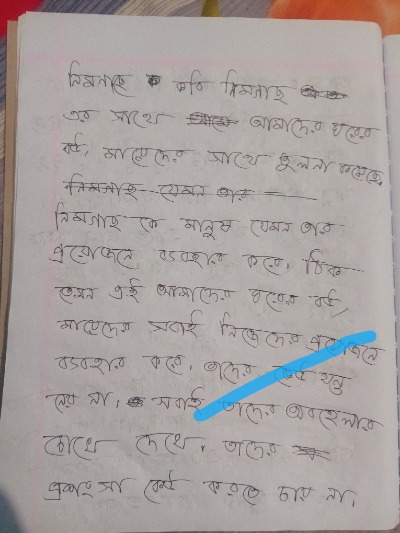 নিমগাছে কবি নিমগাছ
এর সাথে আমাদের ঘরের
বউ, মায়েদের সাথে তুলনা করেছে,
নিমগাছ যেমন তার
নিমগাছ কে মানুষ যেমন তার
প্রয়োজনে ব্যবহার করে, ঠিক
তেমন এই আমাদের ঘরের বউ,
মায়েদের সবাই নিজেদের প্রয়োজনে
ব্যবহার করে, তাদের কেউ যত্ন
নেয় না, সবাই তাদের অবহেলার
চোখে দেখে, তাদের
প্রশংসা কেউ করতে চায় না।